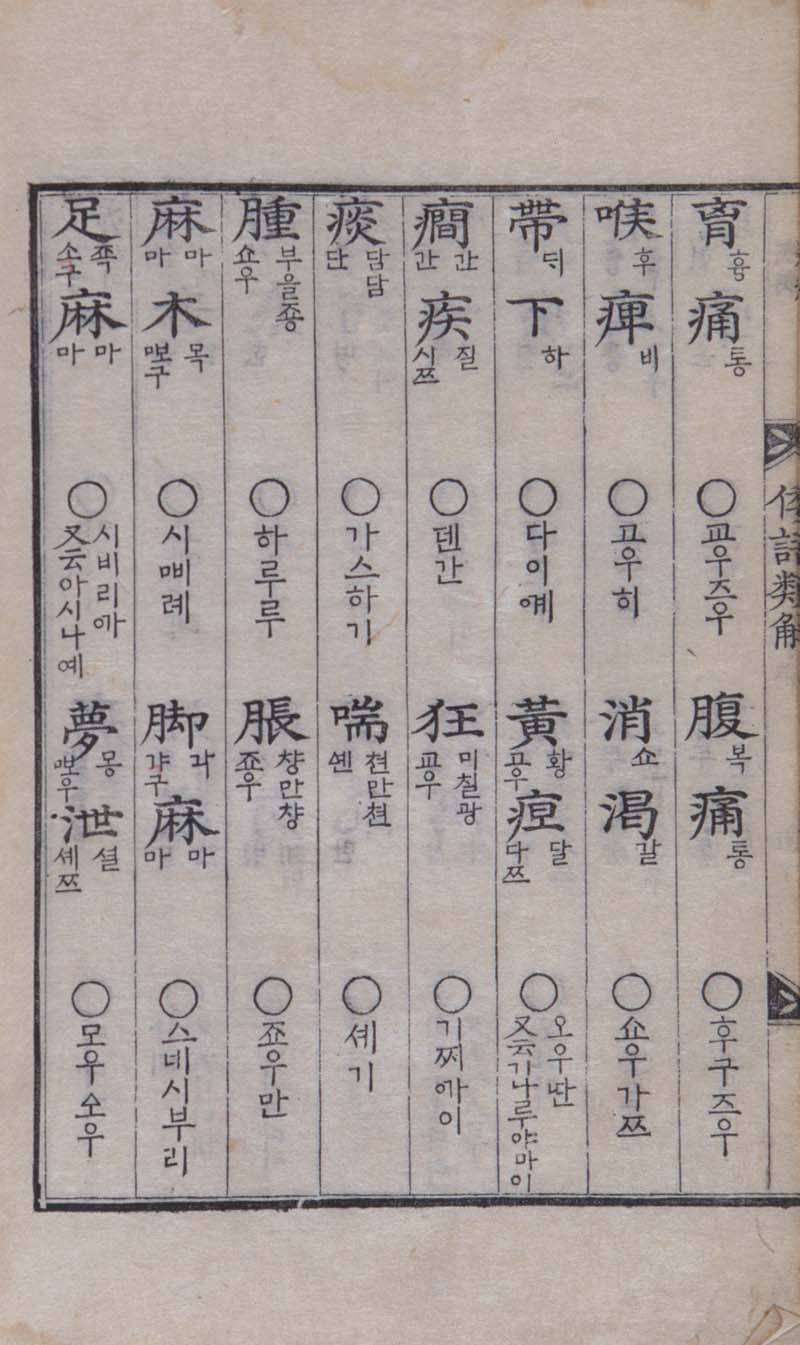 倭語類解
胷흉痛통○교우즈우
腹복痛통○후구즈우
喉후痺비○고우히
消쇼渴갈○쇼우가쯔
帶ᄃᆡ下하○다이ᅋᅨ
黃황고우疸달다쯔○오우ᄯᅡᆫ又云기나루야마이
癎간간疾질시쯔○뎬간
狂미칠광교우○기찌ᅁᅡ이
痰담담단○가스하기
喘쳔만쳔셴○셰기
腫부을죵쇼우○하루루
脹챵만챵죠우○죠우만
麻마마木목ꥱᅩ구○시ꥱᅵ례
脚각갸구麻마마○스네시부리
足죡소구麻마마○시비리ᅁᅡ又云아시나예
夢몽ꥱᅩ우泄셜셰쯔○모우소우